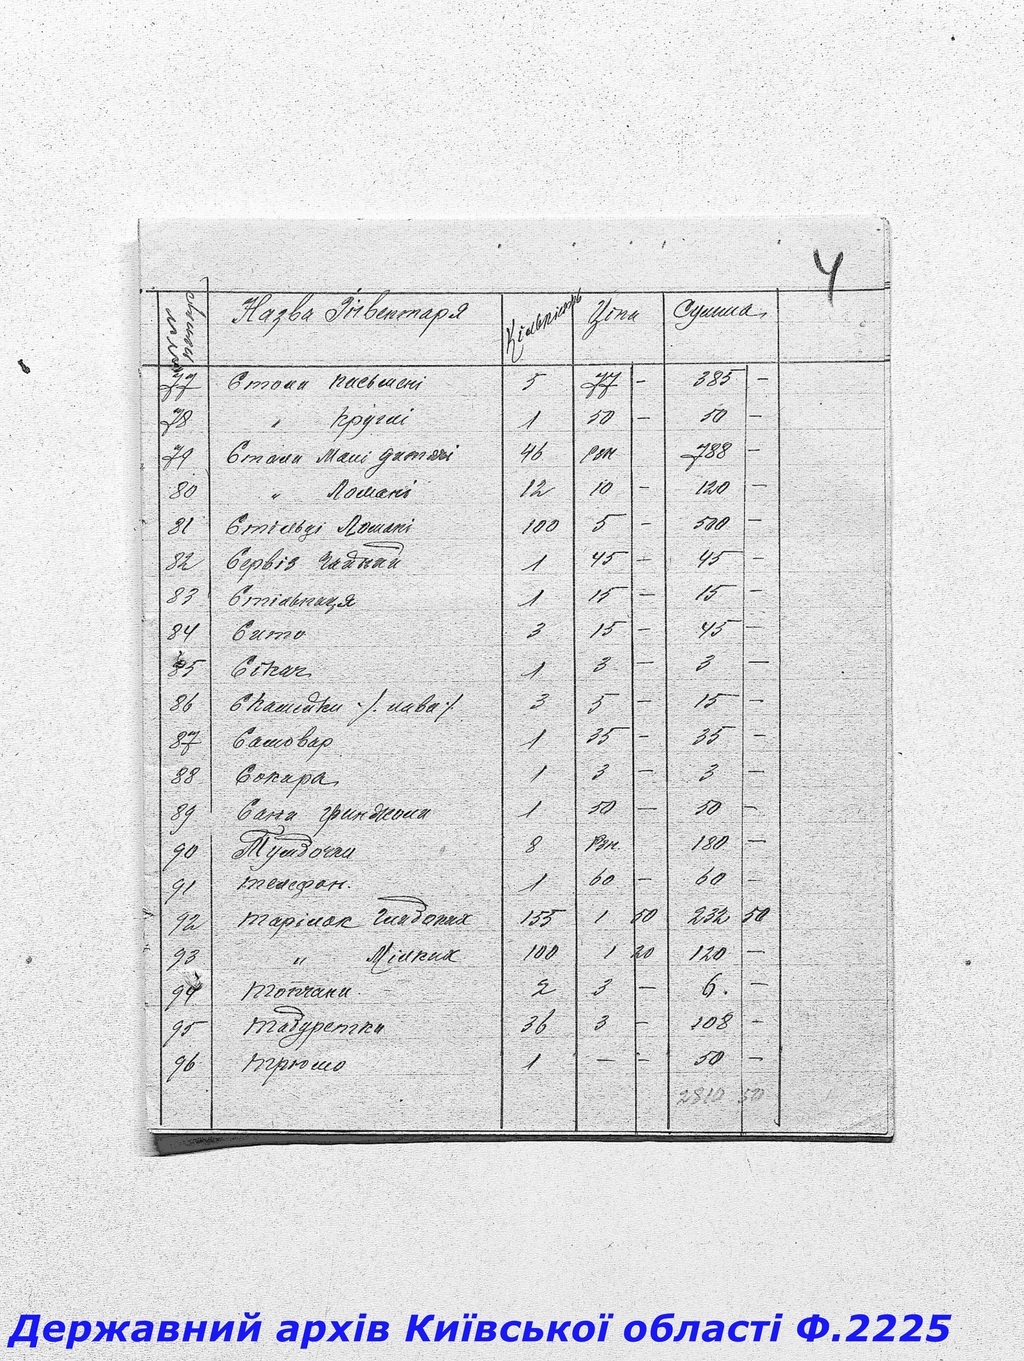 4
Назва Інвентаря Кількість Ціна Сумма
77 Столи письмені 5 77 - 385 -
78 " Круглі 1 50 - 50 -
79 Столи Малі дитячі 46 788 -
80 " Ломані 12 10 - 120 -
81 Стільці Ломані 100 5 - 500 -
82 Сервіз Чайний 1 45 - 45 -
83 Стільниця 1 15 - 15 -
84 Сито 3 15 - 45 -
85 Сікач 1 3 - 3 -
86 Скамійки ·/. лава ·/. 3 5 - 15 -
87 Самовар 1 35 - 35 -
88 Сокира 1 3 - 3 -
89 Сани гринджоли 1 50 - 50 -
90 Тумбочки 8 Рзн. 180 -
91 телефон. 1 60 - 60 -
92 тарілок Глибоких 155 1 50 232 50
93 " Мілких 100 1 20 120 -
94 топчани 2 3 - 6. -
95 табуретки 36 3 - 108 -
96 трюмо 1 - - 50 -
2810 50
Державний архів Київської області Ф.2225